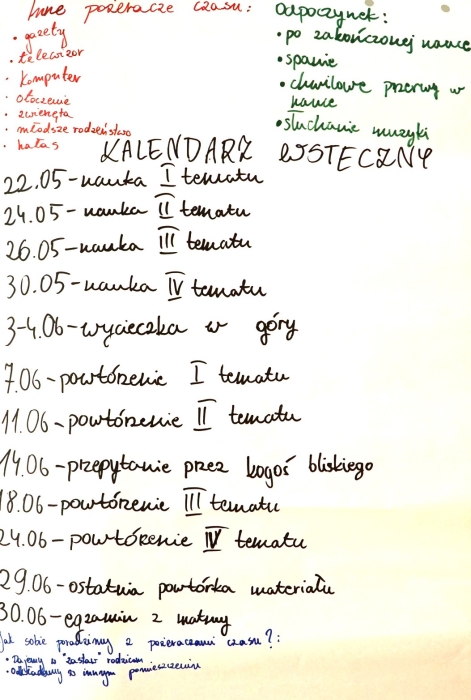 Inne pożeracze czasu:
• gazety
• telewizor
• komputer
• otoczenie
• zwierzęta
• młodsze rodzeństwo
• hałas
Odpoczynek:
• po zakończonej nauce
• spanie
• chwilowe przerwy w
nauce
• słuchanie muzyki
KALENDARZ WSTECZNY
22.05-nauka I tematu
24.05-nauka II tematu
26.05-nauka III tematu
30.05-nauka IV tematu
3-4.06-wycieczka w góry
7.06-powtórzenie I tematu
11.06-powtórzenie II tematu
14.06-przepytanie przez kogoś bliskiego
18.06-powtórzenie III tematu
24.06-powtórzenie IV tematu
29.06-ostatnia powtórka materiału
30.06-egzamin z matmy
Jak sobie poradzimy z pożeraczami czasu?:
• Dajemy w "zastaw" rodzicom
• Odkładamy w innym pomieszczeniu